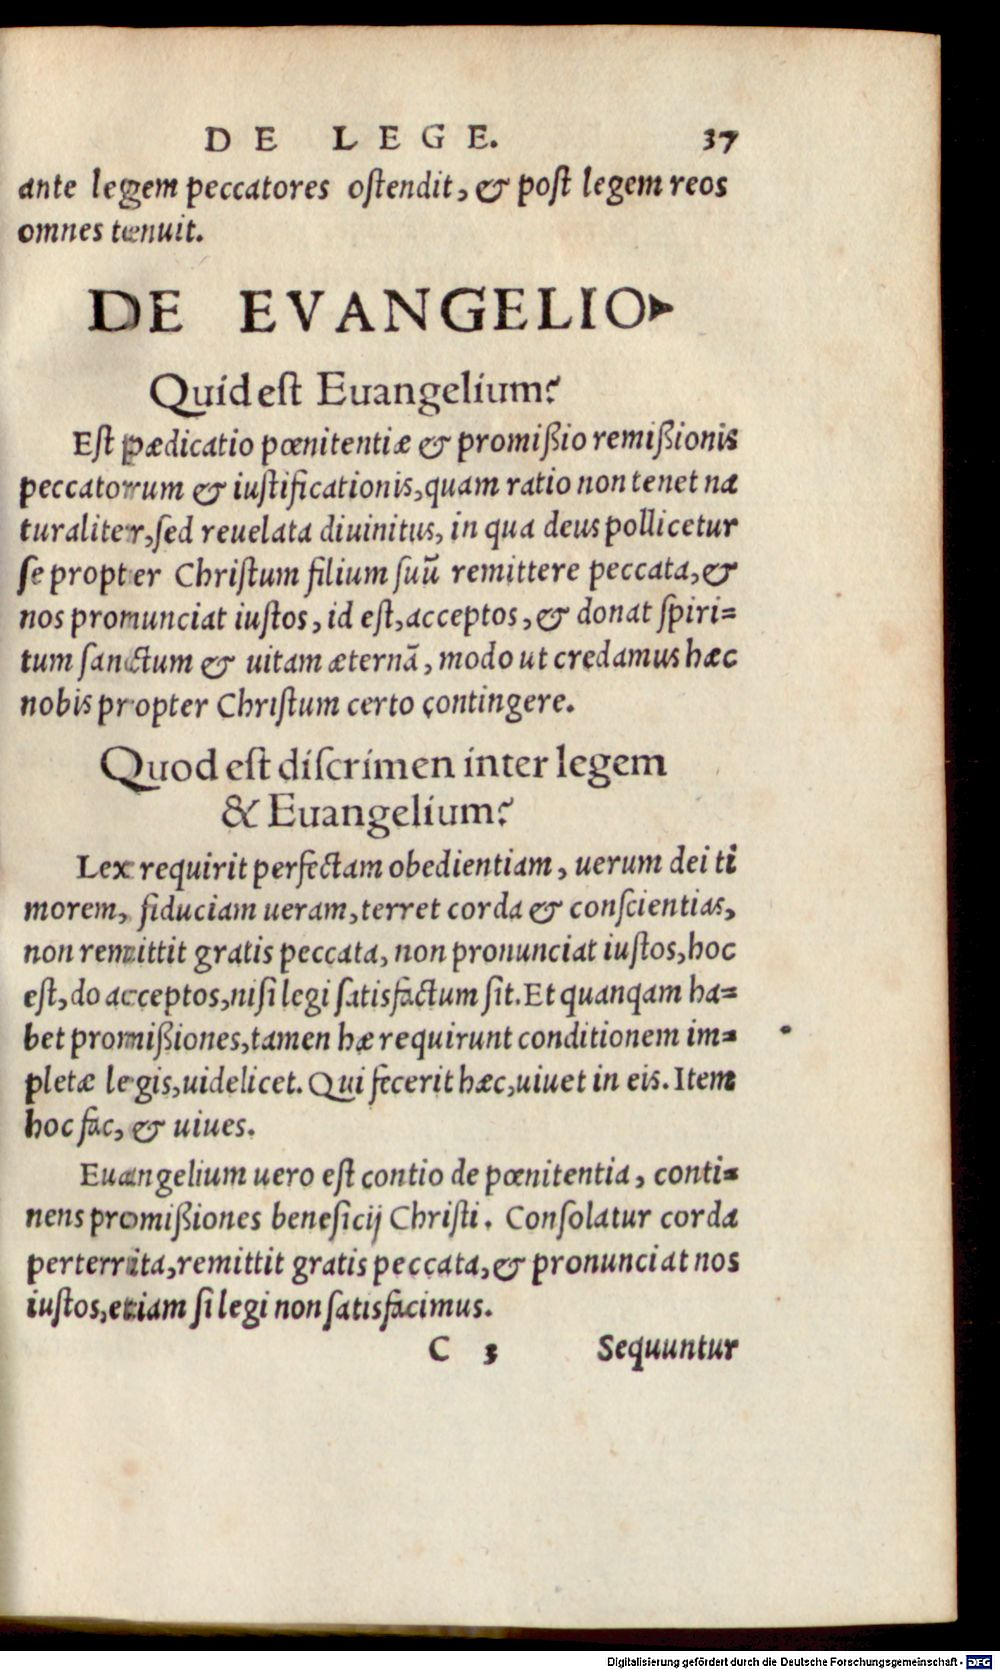 DE LEGE. 37
ante legem peccatores ostendit, & post legem reos
omnes tenuit.
DE EVANGELIO
Quid est Euangelium?
Est pædicatio pœnitentiæ & promißio remißionis
peccatorum & iustificationis, quam ratio non tenet na
turaliter, sed reuelata diuinitus, in qua deus pollicetur
se propter Christum filium suū remittere peccata, &
nos pronunciat iustos, id est, acceptos, & donat spiri=
tum sanctum & uitam æternā, modo ut credamus hæc
nobis propter Christum certo contingere.
Quod est discrimen inter legem
& Euangelium?
Lex requirit perfectam obedientiam, uerum dei ti
morem, fiduciam ueram, terret corda & conscientias,
non remittit gratis peccata, non pronunciat iustos, hoc
est, do acceptos, nisi legi satisfactum sit. Et quanqam ha=
bet promißiones, tamen hæ requirunt conditionem im=
pletæ legis, uidelicet. Qui fecerit hæc, uiuet in eis. Item
hoc fac, & uiues.
Euangelium uero est contio de pœnitentia, conti=
nens promißiones beneficij Christi. Consolatur corda
perterrita, remittit gratis peccata, & pronunciat nos
iustos, etiam si legi non satisfacimus.
C 3 Sequuntur
Digitalisierung gefördert durch die Deutsche Forschungsgemeinschaft - DFG